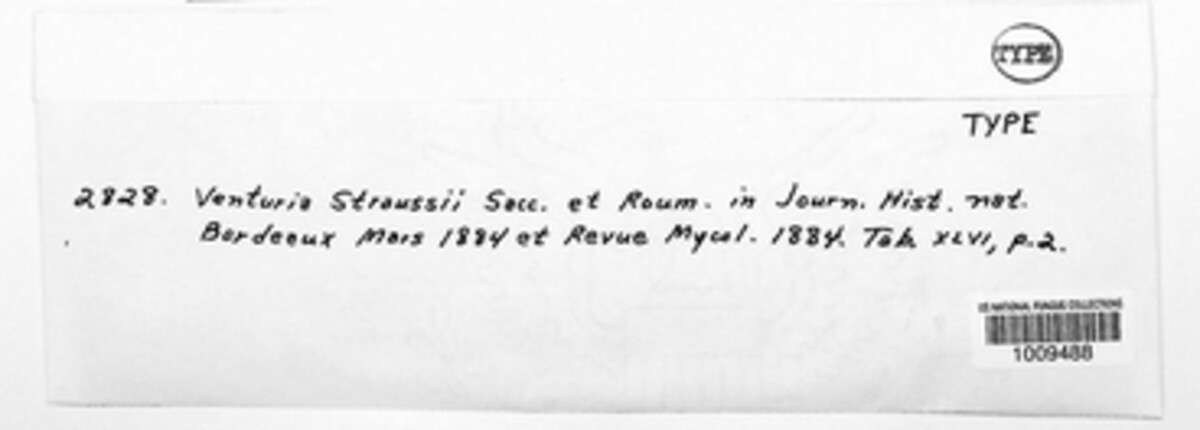 TYPE
TYPE
2828. Venturia Straussii Sacc. et Roum. in Journ. Hist. nat.
Bordeaux Mars 1884 et Revue Mycol. 1884. Tab. XLVI, p. 2.
US NATIONAL FUNGUS COLLECTIONS
1009488